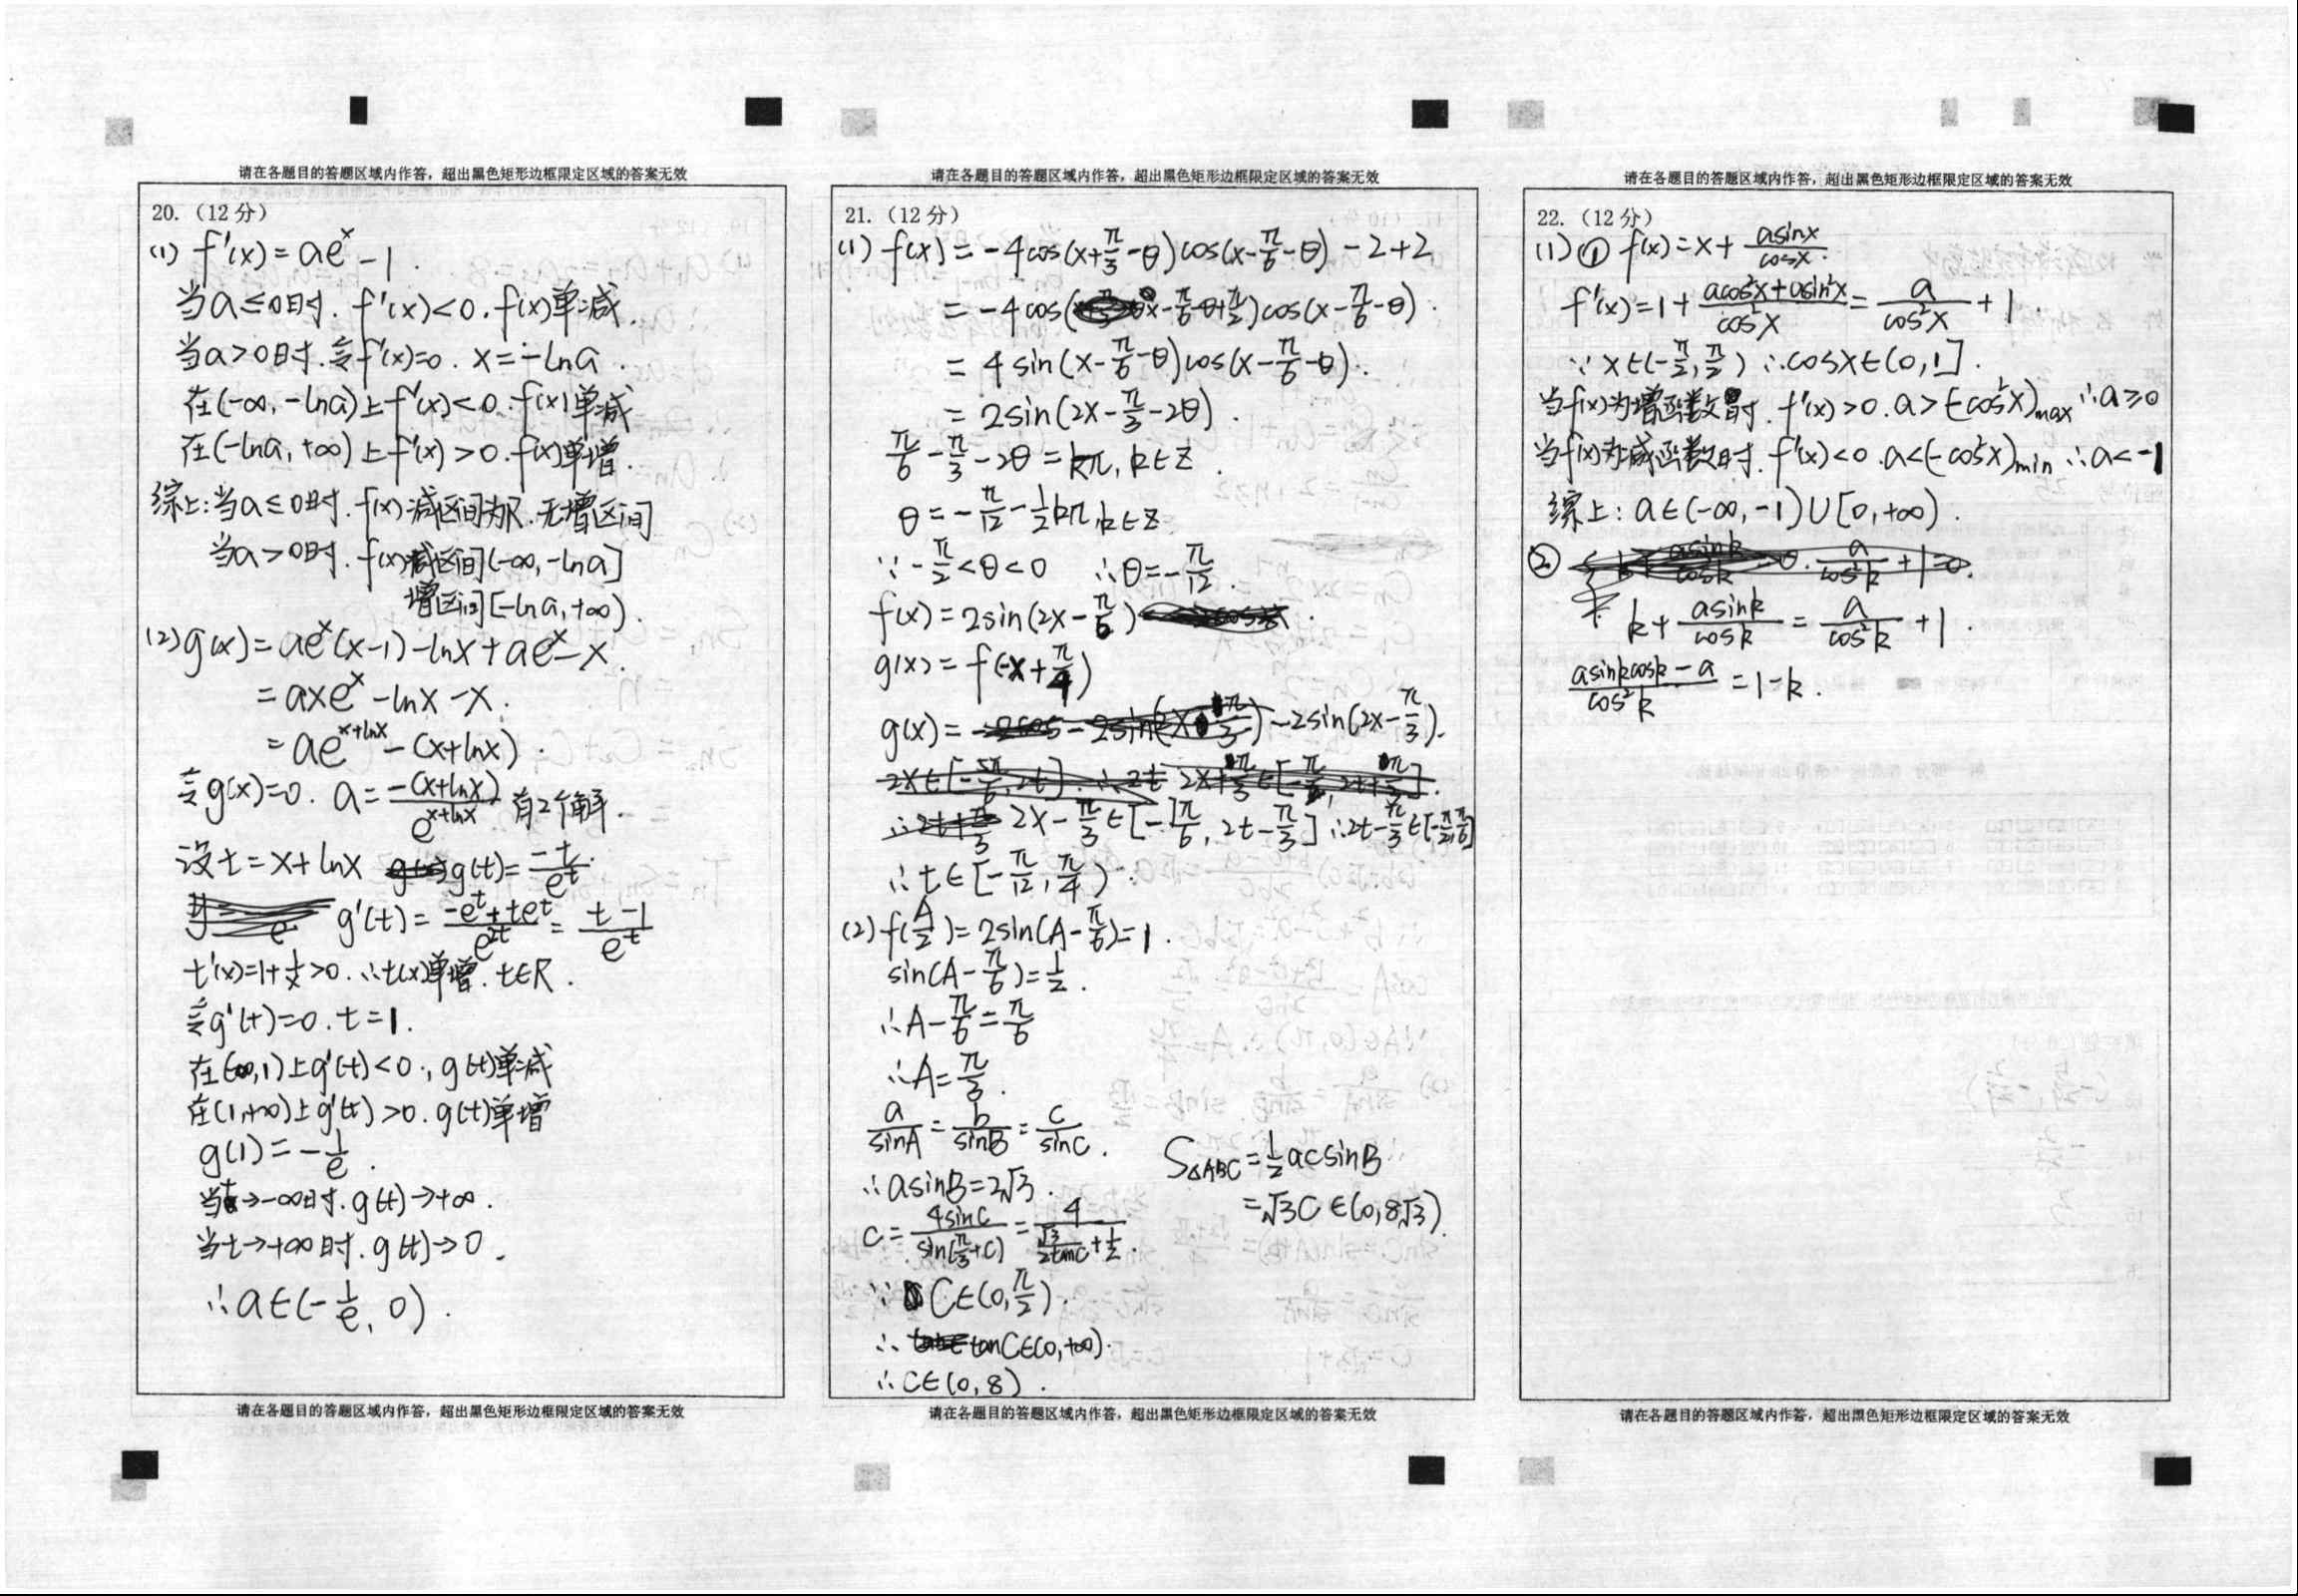 请在各题目的答题区域内作答，超出黑色矩形边框限定区域的答案无效
20.（12分）
(1) f'(x)=ae^x-1.
当a≤0时. f'(x)<0. f(x)单减.
当a>0时. 令f'(x)=0. x=-lna.
在(-∞, -lna)上f'(x)<0. f(x)单减
在(-lna, +∞)上f'(x)>0. f(x)单增.
综上:当a≤0时. f(x)减区间为R. 无增区间
当a>0时. f(x)减区间(-∞, -lna]
增区间[-lna, +∞).
(2) g(x)=ae^x(x-1)-lnx+ae^x-x.
=axe^x-lnx-x.
=ae^{x+lnx}-(x+lnx).
令g(x)=0. a=\frac{-(x+lnx)}{e^{x+lnx}} 有2个解.
设t=x+lnx g(t)=\frac{-t}{e^t}.
g'(t)=\frac{-e^t+te^t}{e^{2t}}=\frac{t-1}{e^t}
t'(x)=1+\frac{1}{x}>0. ∴t(x)单增. t∈R.
令g'(t)=0. t=1.
在(-∞,1)上g'(t)<0., g(t)单减
在(1,+∞)上g'(t)>0. g(t)单增
g(1)=-\frac{1}{e}.
当t→-∞时. g(t)→+∞.
当t→+∞时. g(t)→0.
∴a∈(-\frac{1}{e}, 0).
请在各题目的答题区域内作答，超出黑色矩形边框限定区域的答案无效
请在各题目的答题区域内作答，超出黑色矩形边框限定区域的答案无效
21.（12分）
(1) f(x)=-4cos(x+\frac{π}{3}-θ)cos(x-\frac{π}{6}-θ)-2+2
=-4cos(x-\frac{π}{6}-θ+\frac{π}{2})cos(x-\frac{π}{6}-θ).
=4sin(x-\frac{π}{6}-θ)cos(x-\frac{π}{6}-θ).
=2sin(2x-\frac{π}{3}-2θ).
\frac{π}{6}-\frac{π}{3}-2θ=kπ, k∈Z.
θ=-\frac{π}{12}-\frac{1}{2}kπ, k∈Z
∵-\frac{π}{2}<θ<0 ∴θ=-\frac{π}{12}.
f(x)=2sin(2x-\frac{π}{6}).
g(x)=f(-x+\frac{π}{4})
g(x)=-2sin(2x-\frac{π}{3}).
2x-\frac{π}{3}∈[-\frac{7π}{6}, 2t-\frac{π}{3}] ∴2t-\frac{π}{3}∈[-\frac{π}{2},\frac{π}{6}]
∴t∈[-\frac{π}{12}, \frac{π}{4}).
(2) f(\frac{A}{2})=2sin(A-\frac{π}{6})=1.
sin(A-\frac{π}{6})=\frac{1}{2}.
∴A-\frac{π}{6}=\frac{π}{6}
∴A=\frac{π}{3}.
\frac{a}{sinA}=\frac{b}{sinB}=\frac{c}{sinC}.
∴asinB=2√3.
c=\frac{4sinC}{sin(\frac{π}{3}+C)}=\frac{4}{\frac{√3}{2tanC}+\frac{1}{2}}.
∵C∈(0,\frac{π}{2}).
∴tanC∈(0,+∞).
∴c∈(0,8).
S_{△ABC}=\frac{1}{2}acsinB
=√3c∈(0,8√3).
请在各题目的答题区域内作答，超出黑色矩形边框限定区域的答案无效
请在各题目的答题区域内作答，超出黑色矩形边框限定区域的答案无效
22.（12分）
(1)① f(x)=x+\frac{asinx}{cosx}.
f'(x)=1+\frac{acos²x+asin²x}{cos²x}=\frac{a}{cos²x}+1.
∵x∈(-\frac{π}{2},\frac{π}{2}) ∴cosx∈(0,1].
当f(x)为增函数时. f'(x)>0. a>(-cos²x)_{max} ∴a≥0
当f(x)为减函数时. f'(x)<0. a<(-cos²x)_{min} ∴a<-1
综上: a∈(-∞,-1)∪[0,+∞).
②
k+\frac{asink}{cosk}=\frac{a}{cos²k}+1.
\frac{asinkcosk-a}{cos²k}=1-k.
请在各题目的答题区域内作答，超出黑色矩形边框限定区域的答案无效